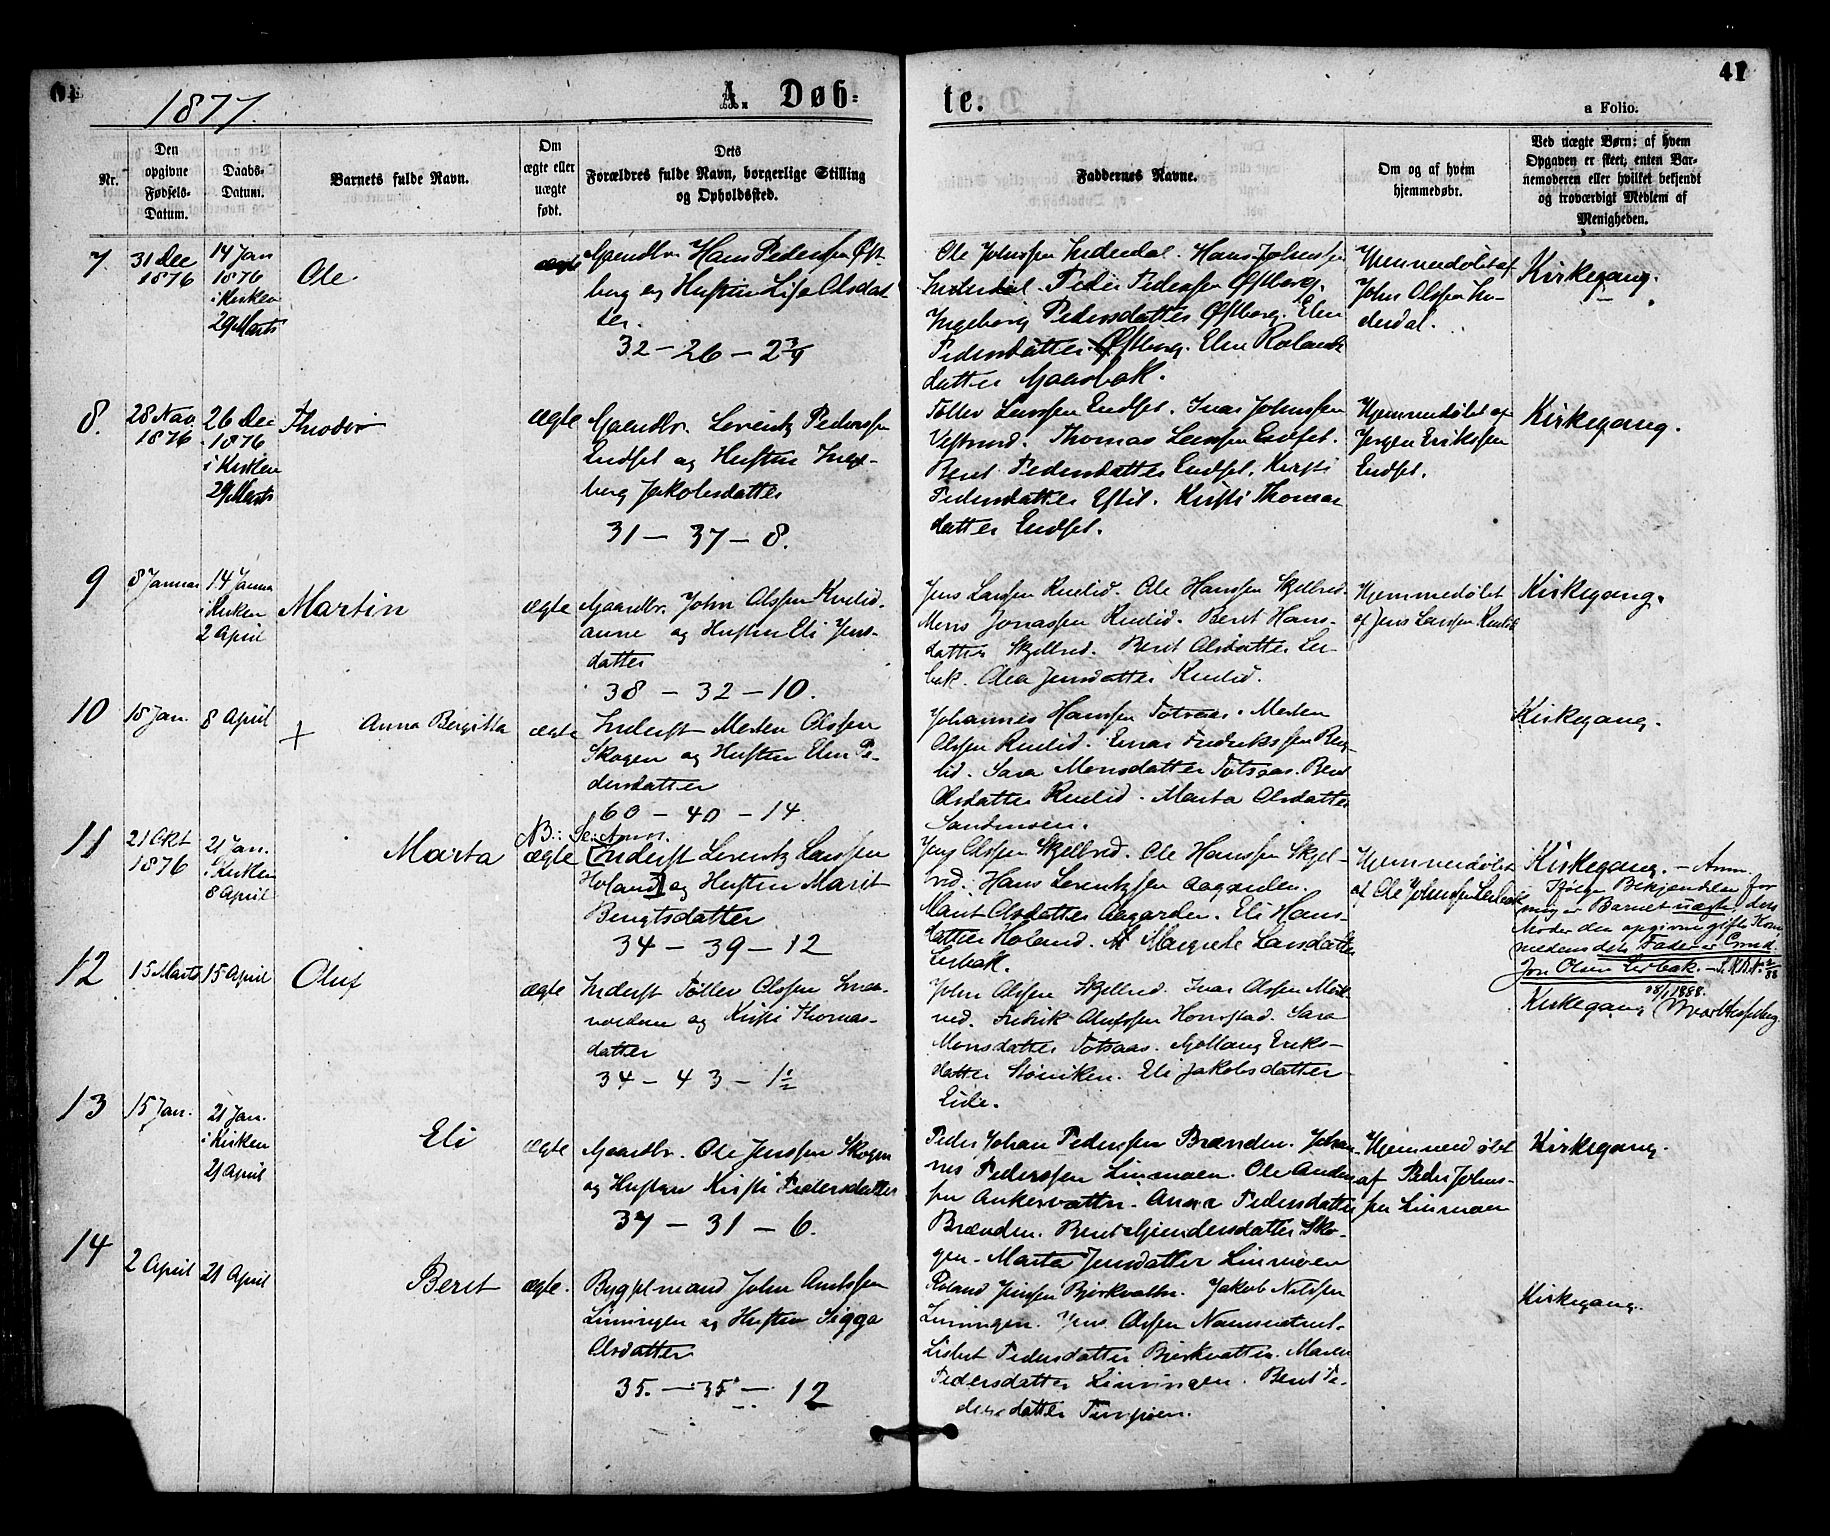 1877.
A. Døb-
te.
41
a Folio.
Nr.
Den opgivne Fødsels-Datum.
Daabs-Datum.
Barnets fulde Navn.
Om ægte eller uægte født.
Dets Forældres fulde Navn, borgerlige Stilling og Opholdssted.
Faddernes Navne.
Om og af hvem hjemmedøbt.
Ved uægte Børn: af hvem Opgaven er skeet, enten Barnemoderen eller hvilket bekjendt og troværdigt Medlem af Menigheden.
7.
31 Dec
1876
14 Jan
1876
i Kirken
29 Marts
Ole
ægte
Hans Pederssen Øst-
berg og Hustru Lisa Olsdat-
ter.
32 - 26 - 2 3/4
Ole Johnssen Inderdal. Hans Johnssen
Inderdal. Peder Pederssen Østberg.
Ingeborg Pedersdatter Østberg. Elen
Pedersdatter Østberg. Elen Rolands-
datter
Hjemmedøbt af
John Olssen In-
derdal.
Kirkegang.
8.
28 Nov.
1876
26 Dec
1876
i Kirken
29 Marts
Theodor
ægte
Gaardbr. Lorentz Pederssen
Endset og Hustru Inge-
borg Jakobsdatter
31 - 37 - 8.
Toller Larssen Endset. Ivar Johnssen
Thomas Larssen Endset.
Beret Pedersdatter Endset. Kirsti
Pedersdatter Kirsti Thomas-
datter Endset.
Hjemmedøbt af
Jørgen Erikssen
Endset.
Kirkegang.
9
8 Januar
14 Janua
i Kirken
2 April
Martin
ægte
Gaardbr. John Olssen Kvelid.
og Hustru Eli Jens-
datter
38 - 32 - 10.
Jens Larssen Kvelid. Ole Hanssen Skjelbred.
Mons Jonassen Kvelid. Beret Hans-
datter Skjelbred. Beret Olsdatter Ler-
bak. Olea Jensdatter Kvelid.
Hjemmedøbt
af Jens Larssen Kvelid
Kirkegang.
10
18 Jan.
8 April
+ Anna Bergitta
ægte
Inderst Morten Olssen
Skogen og Hustru Elen Pe-
dersdatter
60 - 40 - 14.
Johannes Hanssen Totsaas. Morten
Olssen Kvelid. Einar Fredrikssen Berg-
lid. Sara Monsdatter Totsaas. Beret
Olsdatter Kvelid. Marta Olsdatter
Sandmoen.
Kirkegang.
11
21 Okt
1876
21 Jan.
i Kirken
8 April
Marta
NB: Se Anm.
ægte
Inderst Lorentz Larssen
Holand og Hustru Marit
Bengtsdatter
34 - 39 - 12
Jens Olssen Skjelbred. Ole Hanssen Skjel-
bred. Hans Lorentzsen Aagaarden.
Marit Olsdatter Aagarden. Eli Hans-
datter Holand. Margrete Larsdatter
Lerbak.
Hjemmedøbt
af Ole Johnssen Lerbak
Kirkegang. - Anm.
Ifølge Bekjendelse for
mig er Barnet uægte, dets
Moder den opgivne gifte Kone
medens dets Fader er
Jon Olsen Lerbak.
28/1 1888.
12
15 Marts
15 April
Oluf
ægte
Inderst Toller Olssen
og Kirsti Thomas-
datter
34 - 43 - 1 1/2
John Olssen Skjelbred. Ivar Olssen Mork-
ved. Fredrik Olufssen Homstad. Sara
Monsdatter Totsaas. Eriks-
datter Eli Jakobsdatter
Eide.
Kirkegang
13
15 Jan.
21 Jan.
i Kirken
21 April
Eli
ægte
Gaardbr. Ole Jenssen Skogen
og Hustru Kirsti Pedersdatter
37 - 31 - 6.
Peder Johan Pederssen Brænden. Johan-
nes Pederssen Linmoen. Ole Anders-
sen Ankervatten. Anna Pedersdatter
Brænden. Beret Gjendersdatter Sko-
gen. Marta Jensdatter Linmoen
Hjemmedøbt
af Peder Johns-
sen Linmoen
Kirkegang.
14
2 April
21 April
Beret
ægte.
Bygselmand John Arntssen
Linningen og Hustru Sigga
Olsdatter
35. - 35 - 12
Roland Jenssen Bjørkvatten. Jakob Nilssen
Linningen. Jens Olssen
Lisbet Pedersdatter Bjørkvatten. Maren
Pedersdatter Linningen. Beret Pe-
dersdatter
Kirkegang.